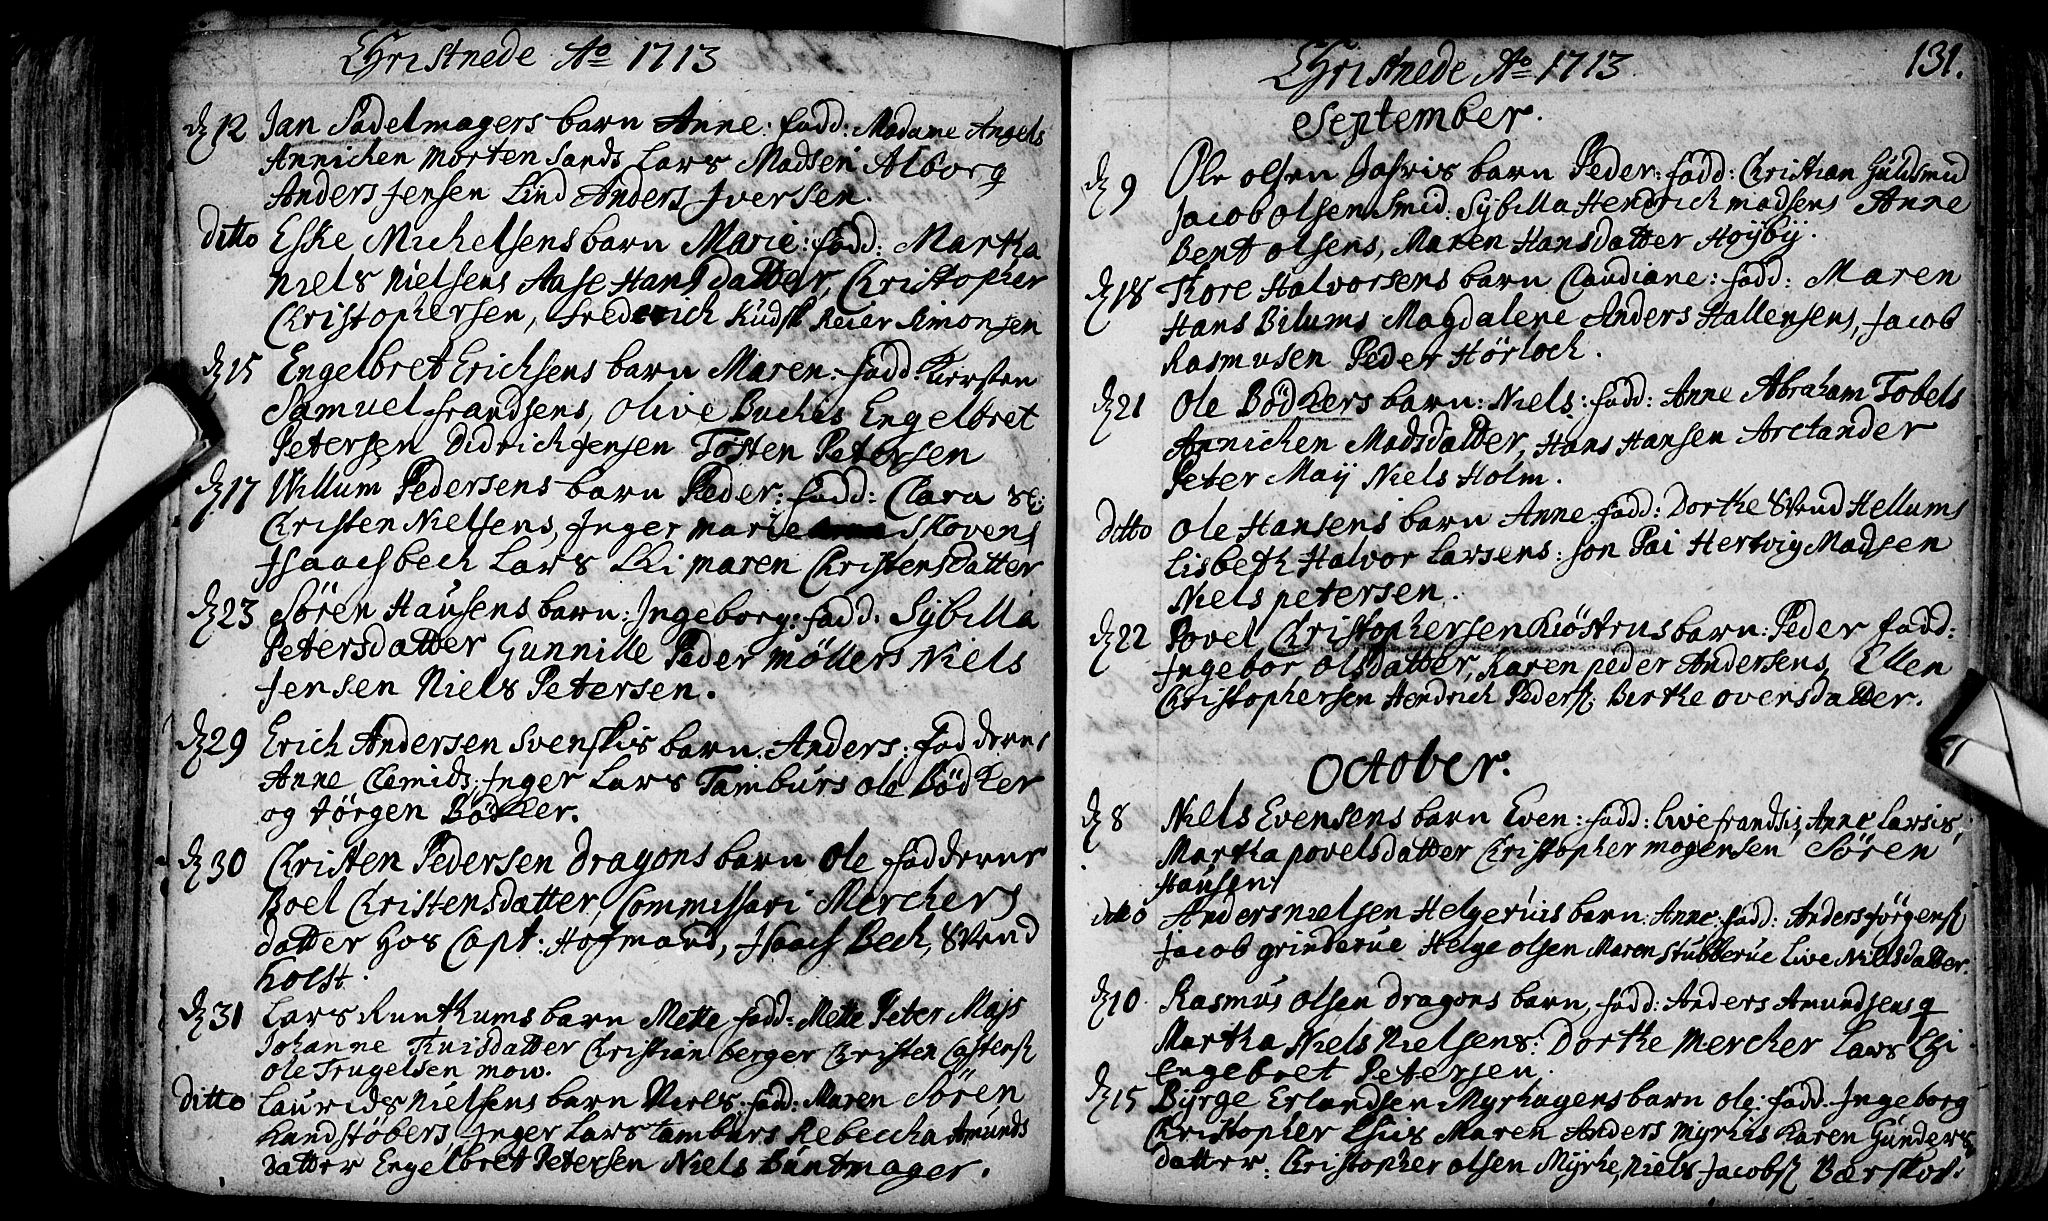 Christnede Ao 1713
dz 12 Jan Sadelmagers barn Anne: fadd: Madame Angels
Annichen Morten Sands Lars Madsen Alborg
Anders Jensen Lind Anders Iversen.
ditto Eske Michelsens barn Marie: fadd: Martha
Niels Nielsens Aase Hansdatter, Christopher
Christophersen, Frederich Kudsk Reier Simonsen
dz 15 Engelbret Erichsens barn Maren: fadd: Kiersten
Samuel frandsens, Olive Buches Engelbret
Petersen Didrich Jensen Tosten Petersen
dz 17 Willum Pedersens barn Peder: fadd: Clara Sl:
Christen Nielsens, Inger marie Skovens
Isaach bech Lars Chi maren Christensdatter
dz 23 Sören Hausens barn: Ingeborg: fadd: Sÿbilla
Petersdatter Gunnille Peder möllers Niels
Jensen Niels Petersen.
dz 29 Erich Andersen Svenskis barn Anders: fadderne
Anne Clemids, Inger Lars Tamburs ole Bödker
og Jörgen Bödker.
dz 30 Christen Pedersen Dragons barn Ole fadderne
Boel Christensdatter, Commissari Merchers
datter hos Capt: Hofmand, Isaach Bech, Svend
holst.
dz 31 Lars Runthums barn Mette fadd: Mette Peter Majs
Johanne Thuisdatter Christian berger Christen Castens
ole Trugelsen mow.
ditto Laurids Nielsens barn Niels, fadd: Maren Sören
Handstöbers Inger Lars tamburs Rebeccha Amunds
datter Engelbret Petersen Niels Buntmager.
131.
Christnede Ao 1713
September.
dz 9 Ole olsen barn Peder: fadd: Christian Guldsmid
Jacob olsen Smid: Sÿbilla Hendrich madsens Anne
Bent olsens, Maren Hansdatter Høÿbÿ.
dz 18 Thore Halvorsens barn Claudiane: fadd: Maren
Hans Bilums Magdalene Anders Hallensens, Jacob
Rasmusen Peder Hörloch.
dz 21 Ole Bödkers barn: Niels: fadd: Anne Abraham Tobels
Annichen Madsdatter, Hans Hansen Arctander
Peter Maÿ Niels Holm.
ditto Ole Hansens barn Anne: fadd: Dorthe Svend Hellums
Lisbeth Halvor Larsens: Jon Pai Hertvig Madsen
Niels petersen.
dz 22 Povel Christophersen Kiöstrus barn: Peder fadd:
Ingebor olsdatter, Karen peder Andersens, Ellen
Christophersen Hendrich Peders: Birthe oversdatter.
October.
dz 8 Niels Evensens barn Even: fadd: Live frandsis, Anne Larsis,
Martha povelsdatter Christopher mogensen Sören
Hausen
ditto Anders nielsen Helgeruis barn: Anne: fadd: Anders Jörgens
Jacob grinderue Helge olsen Maren Stubberue Live Nielsdatter.
dz 10 Rasmus Olsen dragons barn, fadd: Anders Amundsens
Martha Niels Nielsens: Dorthe Mercher Lars Chi
Engebret Petersen.
dz 15 Bÿrge Erlandsen Mÿrhagens barn Ole: fadd: Ingeborg
Christopher Maren Anders mÿrhis Karen Gunders
datter: Christopher olsen Mÿrhe, Niels Jacobs Bærskot.